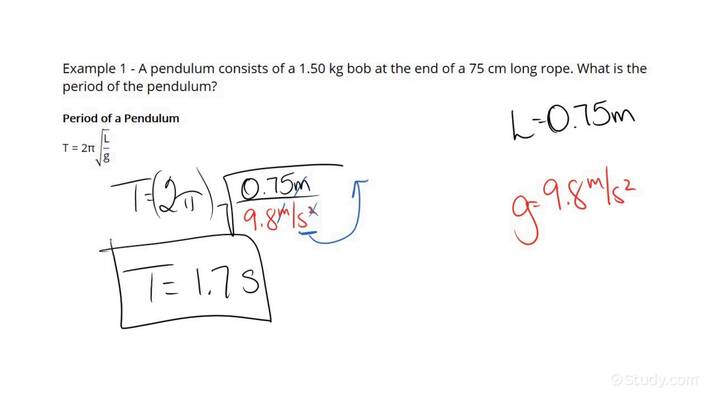 Example 1 - A pendulum consists of a 1.50 kg bob at the end of a 75 cm long rope. What is the
period of the pendulum?
Period of a Pendulum
T = 2π √(L/g)
L=0.75m
g=9.8m/s²
T=(2π) √(0.75m/9.8m/s²)
T=1.7s
©Study.com